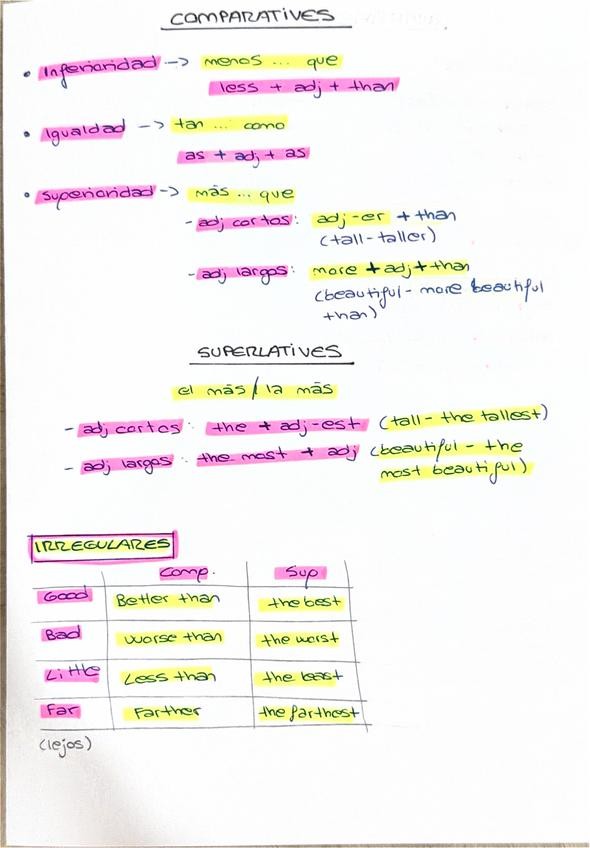 COMPARATIVES
• Inferioridad -> menos ... que
less + adj + than
• Igualdad -> tan ... como
as + adj + as
• Superioridad -> más ... que
- adj cortos: adj-er + than
(tall-taller)
- adj largos: more + adj + than
(beautiful - more beautiful
than)
SUPERLATIVES
el más / la más
- adj cortos: the + adj-est (tall - the tallest)
- adj largos: the most + adj (beautiful - the
most beautiful)
IRREGULARES
Comp. Sup
Good Better than the best
Bad Worse than the worst
Little Less than the least
Far Farther the farthest
(lejos)